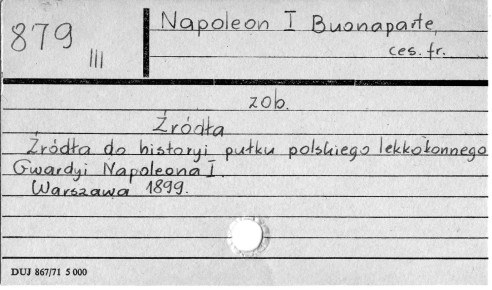 879
III
Napoleon I Buonaparte,
ces. fr.
zob.
Źródła
Źródła do historyi pułku polskiego lekkokonnego
Gwardyi Napoleona I.
Warszawa 1899.
DUJ 867/71 5 000